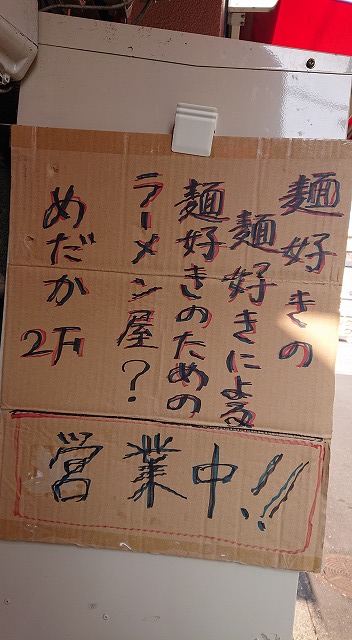 麺好きの
麺好きによる
麺好きのための
ラーメン屋?
めだか 2万
営業中!!